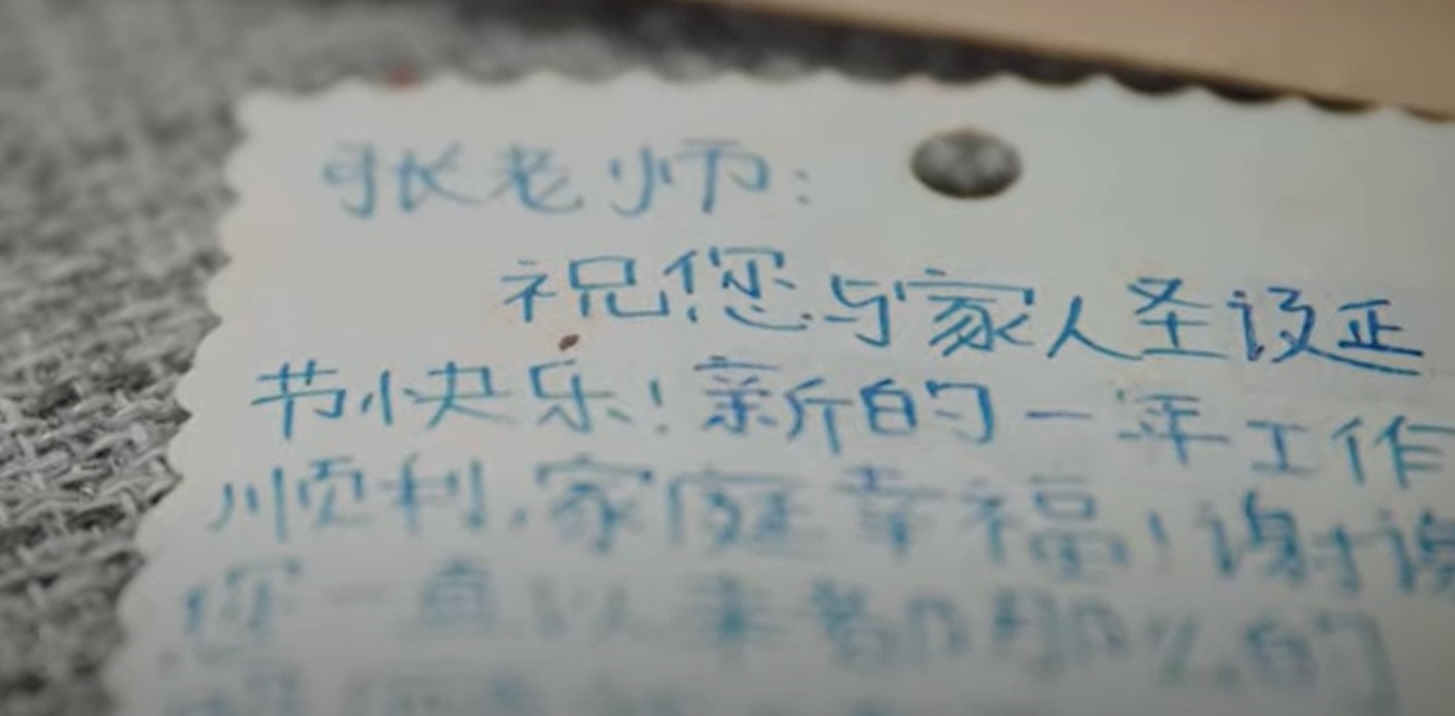 张老师:
祝您与家人圣诞
节快乐!新的一年工作
顺利,家庭幸福!谢谢
您一直以来都那么的